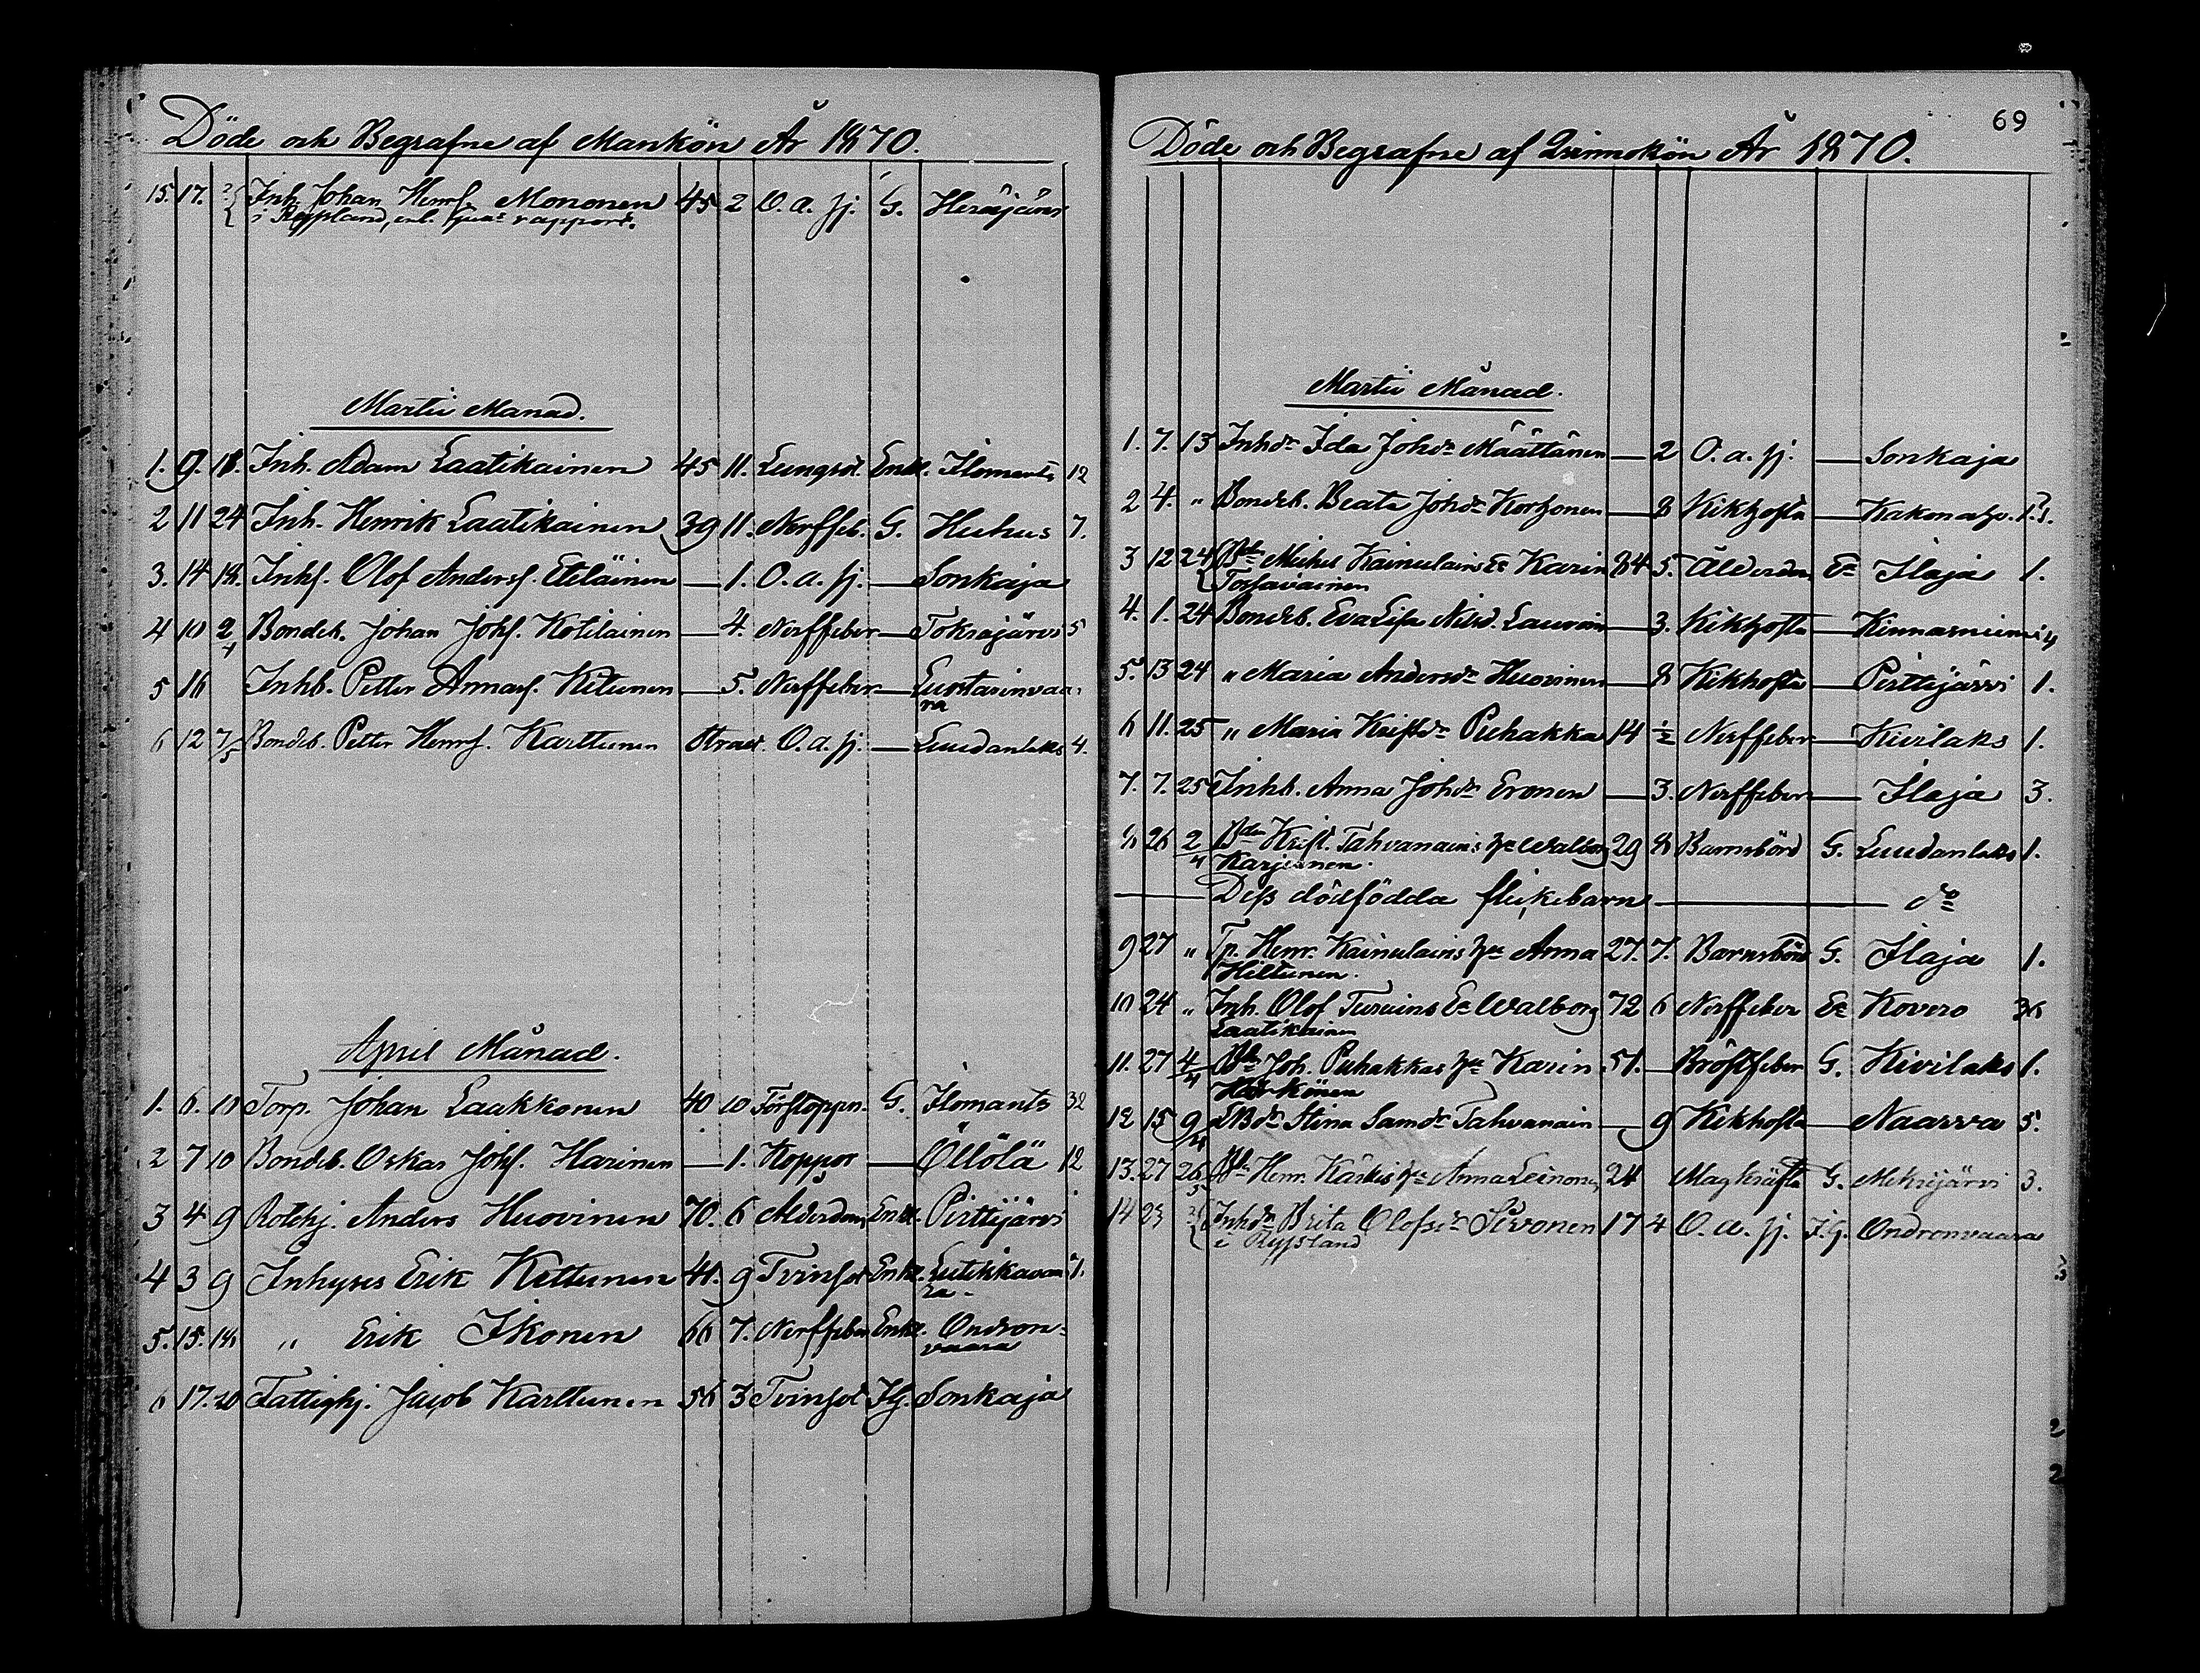 Döde och Begrafne af Mankön År 1870.
15. 17. Inh. Johan Henrs. Mononen 45 2 O. a. sj. G.
i Ryssland, enl. rapport.
Martii Månad.
1. 9. 18. Inh. Adam Laatikainen 45 11. Lungsot. Enkl. Ilomants 12
2 11 24 Inh. Henrik Laatikainen 39 11. Nerffeb. G. Huhus 7.
3. 14 18. Inhs. Olof Anders. Eteläinen — 1. O. a. sj. — Sonkaja
4 10 2/4 Bondeb. Johan Johs. Kotilainen — 4. Nerffeber — Tokrajärvi 5
5 16 Inhb. Petter Annas. Kitunen — 5. Nerffeber — Luostarinvaa-
ra
6 12 7/5 Bondeb. Petter Henrs. Karttunen O. a. sj. — Luudanlaks 4.
April Månad.
1. 6. 10 Torp. Johan Laakkonen 40 10 Förstoppn. G. Ilomants 32
2 7 10 Bondeb. Oskar Johs. Harinen — 1. Koppor — Öllölä 12
3 4 9 Rotehj. Anders Huovinen 70. 6 Ålderdom Enkl. Pirttijärvi
4 3 9 Inhyses Erik Kettunen 41. 9 Tvinsot Enkl. Lutikkavaa- 1.
ra.
5. 15. 18. " Erik Ikonen 66 7. Nerffeber Enkl. Ondron-
vaara
6 17. 20 Fattighj. Jacob Karttunen 56 3 Tvinsot Sonkaja
69
Döde och Begrafne af Qvinnokön År 1870.
Martii Månad.
1. 7. 13 Inhdr Ida Johdr Määttänen — 2 O. a. sj. — Sonkaja
2 4. " Bondeb. Beata Johdr Korhonen — 8 Kikhosta —
3 12 24 Bde Michel Kainulains Ea Karin 84 5. Ålderdom Ea Ilaja 1.
Torvavainen
4. 1. 24 Bondeb. Eva Lisa Nilsd. — 3. Kikhosta — Kinnasniemi
5. 13 24 " Maria Andersdr Huovinen — 8 Kikhosta — Pirttijärvi 1.
6 11. 25 " Maria Kristdr Puhakka 14 ½ Nerffeber — Kivilaks 1.
7. 7. 25 Inhb. Anna Johdr Eronen — 3. Nerffeber — Ilaja 3.
8 26 2/4 Bden Krist. Tahvanains hu Walborg 29 8 Barnsbörd G. Luudanlaks 1.
Karjunen.
— Dess dödfödda flickebarn — do
9 27 " Tp. Henr. Kainulains hu Anna 27. 7. Barnsbörd G. Ilaja 1.
Hiltunen.
10 24 " Inh. Olof Turuins Ea Walborg 72 6 Nerffeber Ea Kovero 36
Laatikainen
11. 27 4/4 Bde Joh. Puhakkas hu Karin 51. — Bröstfeber G. Kivilaks 1.
12 15 9/4 Stina Samdr Tahvanain — 9 Kikhosta — Naarva 5.
13. 27 26/5 Bde Henr. Kärkis hu Anna Leinonen 24 Magkräfta G. Mekrijärvi 3.
14 23 Inhdr Brita Olofsdr Sivonen 17 4 O. a. sj. Ondronvaara
i Ryssland